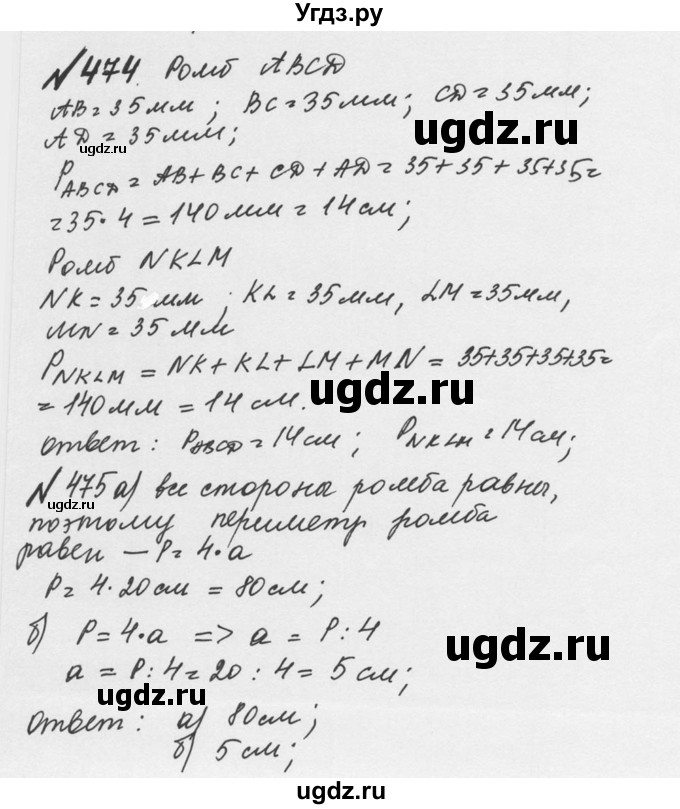 Угдз.ру
№474. Ромб ABCD
AB = 35 мм ; BC = 35 мм; CD = 35 мм;
AD = 35 мм;
ugdz.ru
ugdz.ru
P ABCD = AB + BC + CD + AD = 35 + 35 + 35 + 35 =
= 35 · 4 = 140 мм = 14 см;
Ромб NKLM
NK = 35 мм , KL = 35 мм, LM = 35 мм,
MN = 35 мм
P NKLM = NK + KL + LM + MN = 35+35+35+35 =
= 140 мм = 14 см.
ugdz.ru
ответ: P ABCD = 14 см; P NKLM = 14 см;
№ 475 а) все стороны ромба равны,
ugdz.ru
поэтому периметр ромба
равен — P = 4 · a
P = 4 · 20 см = 80 см;
б) P = 4 · a => a = P : 4
ugdz.ru
a = P : 4 = 20 : 4 = 5 см;
ugdz.ru
ответ: а) 80 см;
б) 5 см;
ugdz.ru